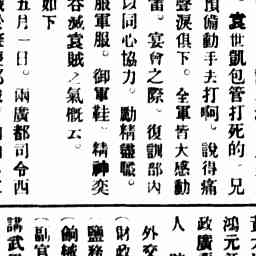 袁世凱包管打死的。兄
預備動手夫打啊。說得痛
聲淚俱下。全軍皆大感動
雷。宴會之際。復訓部內
以同心協力。勵精盡職。
服軍服。御軍鞋。精神奕
吞滅袁賊之氣概云。
如下
五月一日。兩廣都司令西
黃
鴻元
政廣
人
外交
(財政
(鹽務
(餉械
(副官
講武